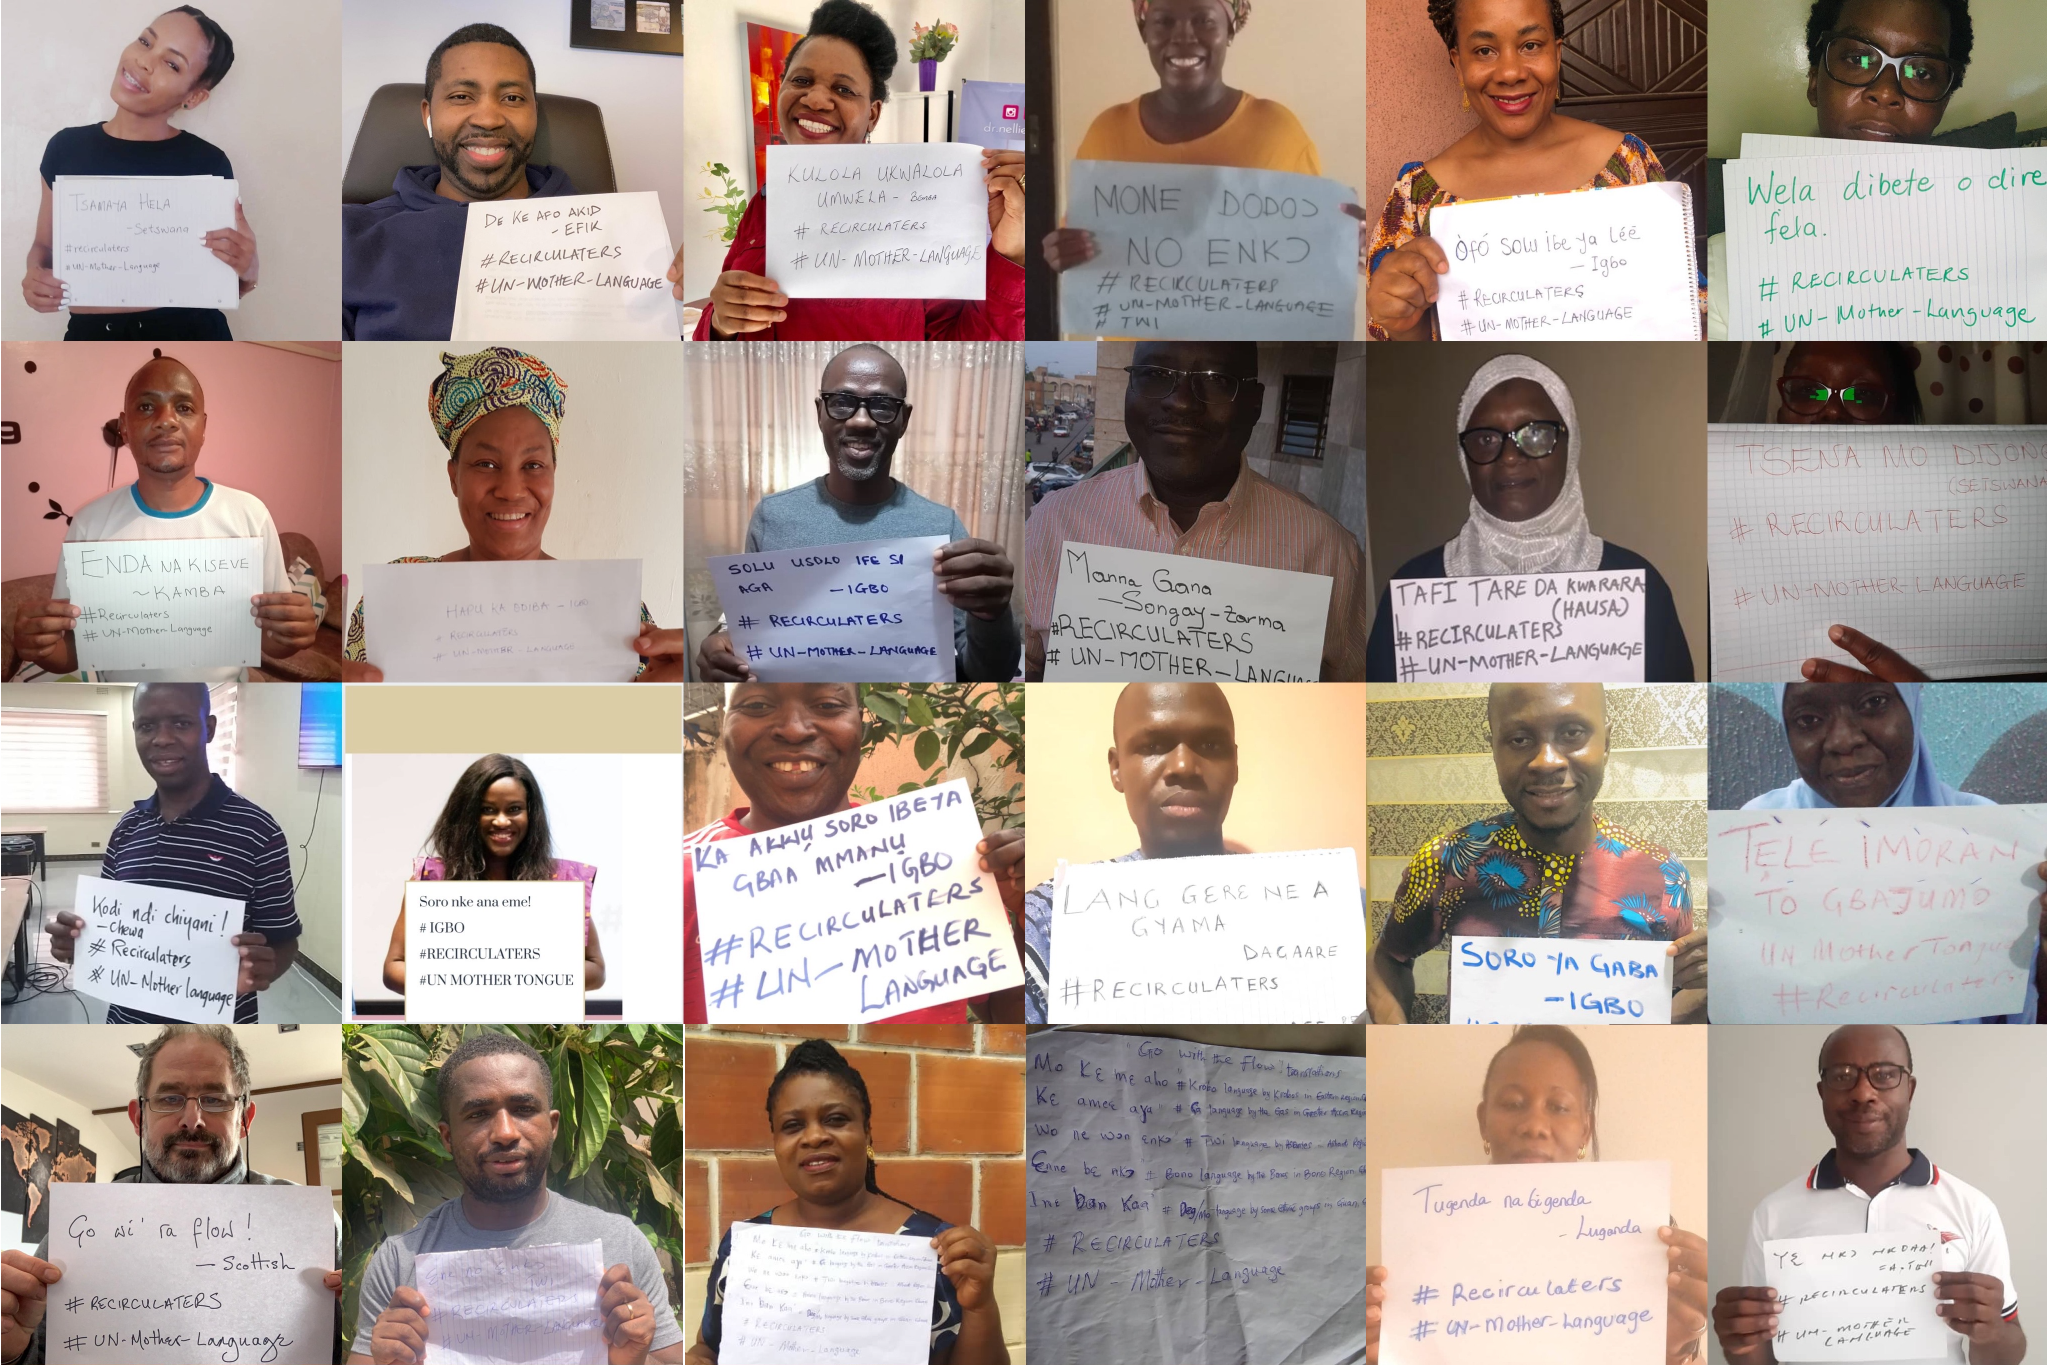 TSAMAYA HELA
-Setswana
#recirculaters
#UN-Mother-Language
DE KE AFO AKID
- EFIK
#RECIRCULATERS
#UN-MOTHER-LANGUAGE
dr.nellie
KULOLA UKWALOLA
UMWELA - Bemba
# RECIRCULATERS
# UN-MOTHER-LANGUAGE
MONE DODOƆ
NO ENKƆ
# RECIRCULATERS
# UN-MOTHER-LANGUAGE
# TWI
Òfó solu ibe ya léé
- Igbo
# RECIRCULATERS
# UN-MOTHER-LANGUAGE
Wela dibete o dire
fela.
# RECIRCULATERS
# UN-Mother-Language
ENDA NA KISEVE
~ KAMBA
#Recirculaters
# UN-Mother-Language
HAPU KA ODIBA - IGBO
# RECIRCULATERS
# UN-MOTHER-LANGUAGE
SOLU USOLO IFE SI
AGA -IGBO
# RECIRCULATERS
# UN-MOTHER-LANGUAGE
Manna Gana
-Songay-Zarma
#RECIRCULATERS
# UN-MOTHER-LANGUAG
TAFI TARE DA KWARARA
(HAUSA)
#RECIRCULATERS
# UN-MOTHER-LANGUAGE
TSENA MO DIJONG
(SETSWANA
# RECIRCULATERS
# UN-MOTHER-LANGUAGE
Kodi ndi chiyani!
-Chewa
# Recirculaters
# UN-Mother language
Soro nke ana eme!
# IGBO
#RECIRCULATERS
#UN MOTHER TONGUE
KA AKWỤ SORO IBE YA
GBAA MMANỤ
-IGBO
#RECIRCULATERS
#UN-MOTHER
LANGUAGE
LANG GERE NE A
GYAMA
DAGAARE
#RECIRCULATERS
SORO YA GABA
-IGBO
TẸ̀LÉ ÌMỌ̀RÀN
TÓ GBAJÚMỌ̀
UN Mother Tongue
#Recirculaters
Go wi' ra flow!
- Scottish
# RECIRCULATERS
# UN-Mother-Language
TWI
# RECIRCULATERS
# UN-MOTHER LANGUAGE
Go with the flow translations
# RECIRCULATERS
# UN-Mother-Language
"Go with the flow" translations
Mo Kɛ me abo # Krobo language by Krobos in Eastern Region
Kɛ amee aya" # Ga language by the Gas in Greater Accra Region
Wo ne won enkɔ # Twi language by
Ɛnne bɛ nkɔ # Bono language by the Bonos in Bono Region
Inɛ Ban Kaa # language by some ethnic groups in
# RECIRCULATERS
# UN - Mother - Language
Tugenda na bigenda
- Luganda
# Recirculaters
# UN-Mother-Language
YƐ NKƆ NKOAA!
# RECIRCULATERS
# UN-MOTHER
LANGUAGE